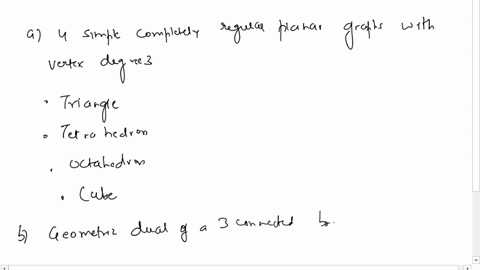 a) 4 simple completely regular planar graphs with
vertex degree 3
• Triangle
• Tetrahedron
• octahedron
• Cube
b) Geometric dual of a 3 connected